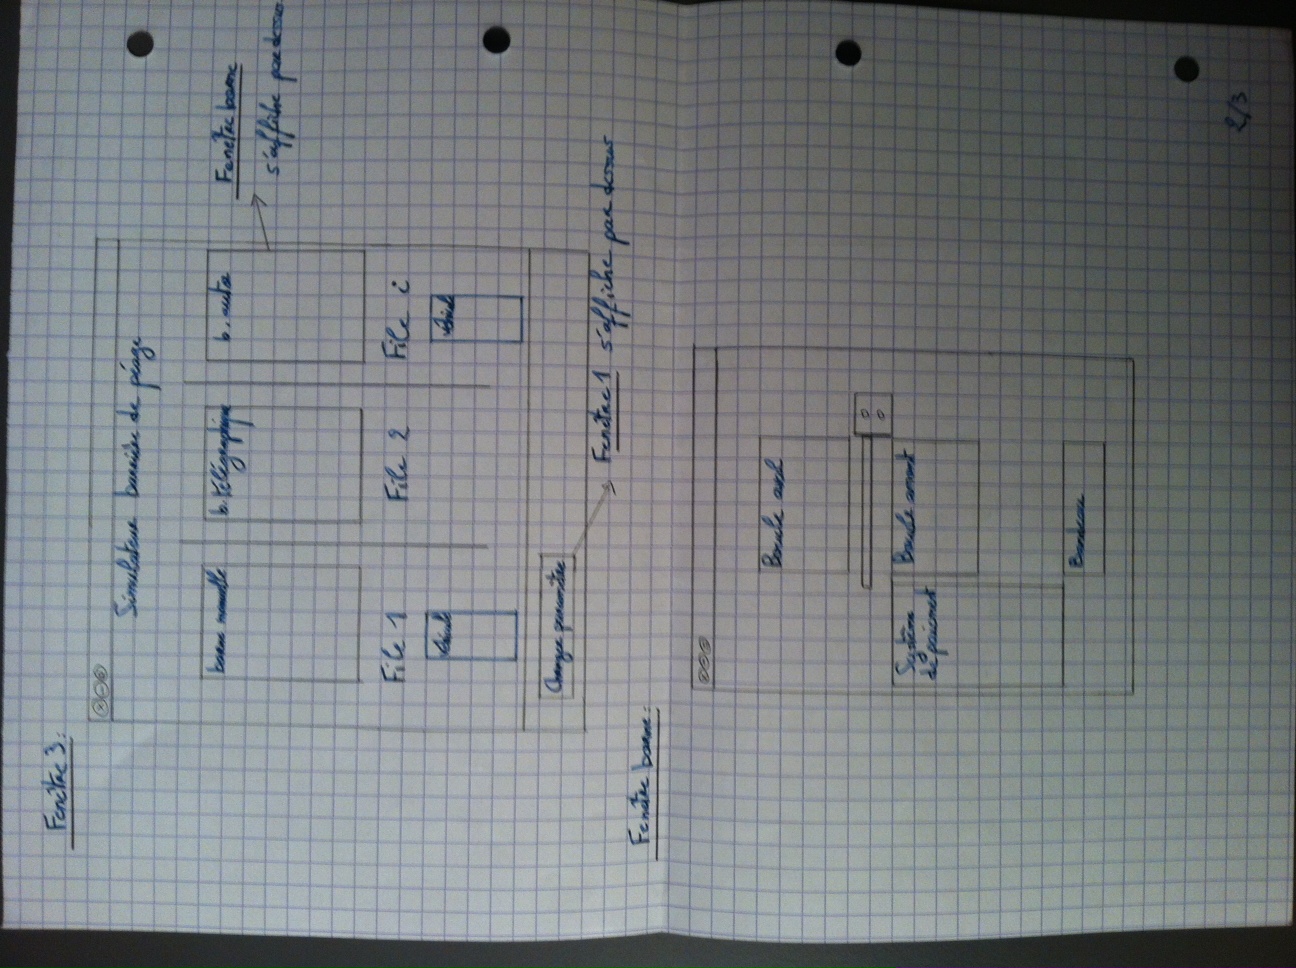 Fenêtre 3:
Simulateur barrière de péage
borne manuelle
b. télégraphique
b. auto
Fenêtre borne
s'affiche par dessus
File 1
File 2
File i
véhicule
véhicule
Changer paramètre
Fenêtre 1 s'affiche par dessus
Fenêtre borne:
Boucle aval
Système
de paiement
Boucle amont
Bandeau
2/3